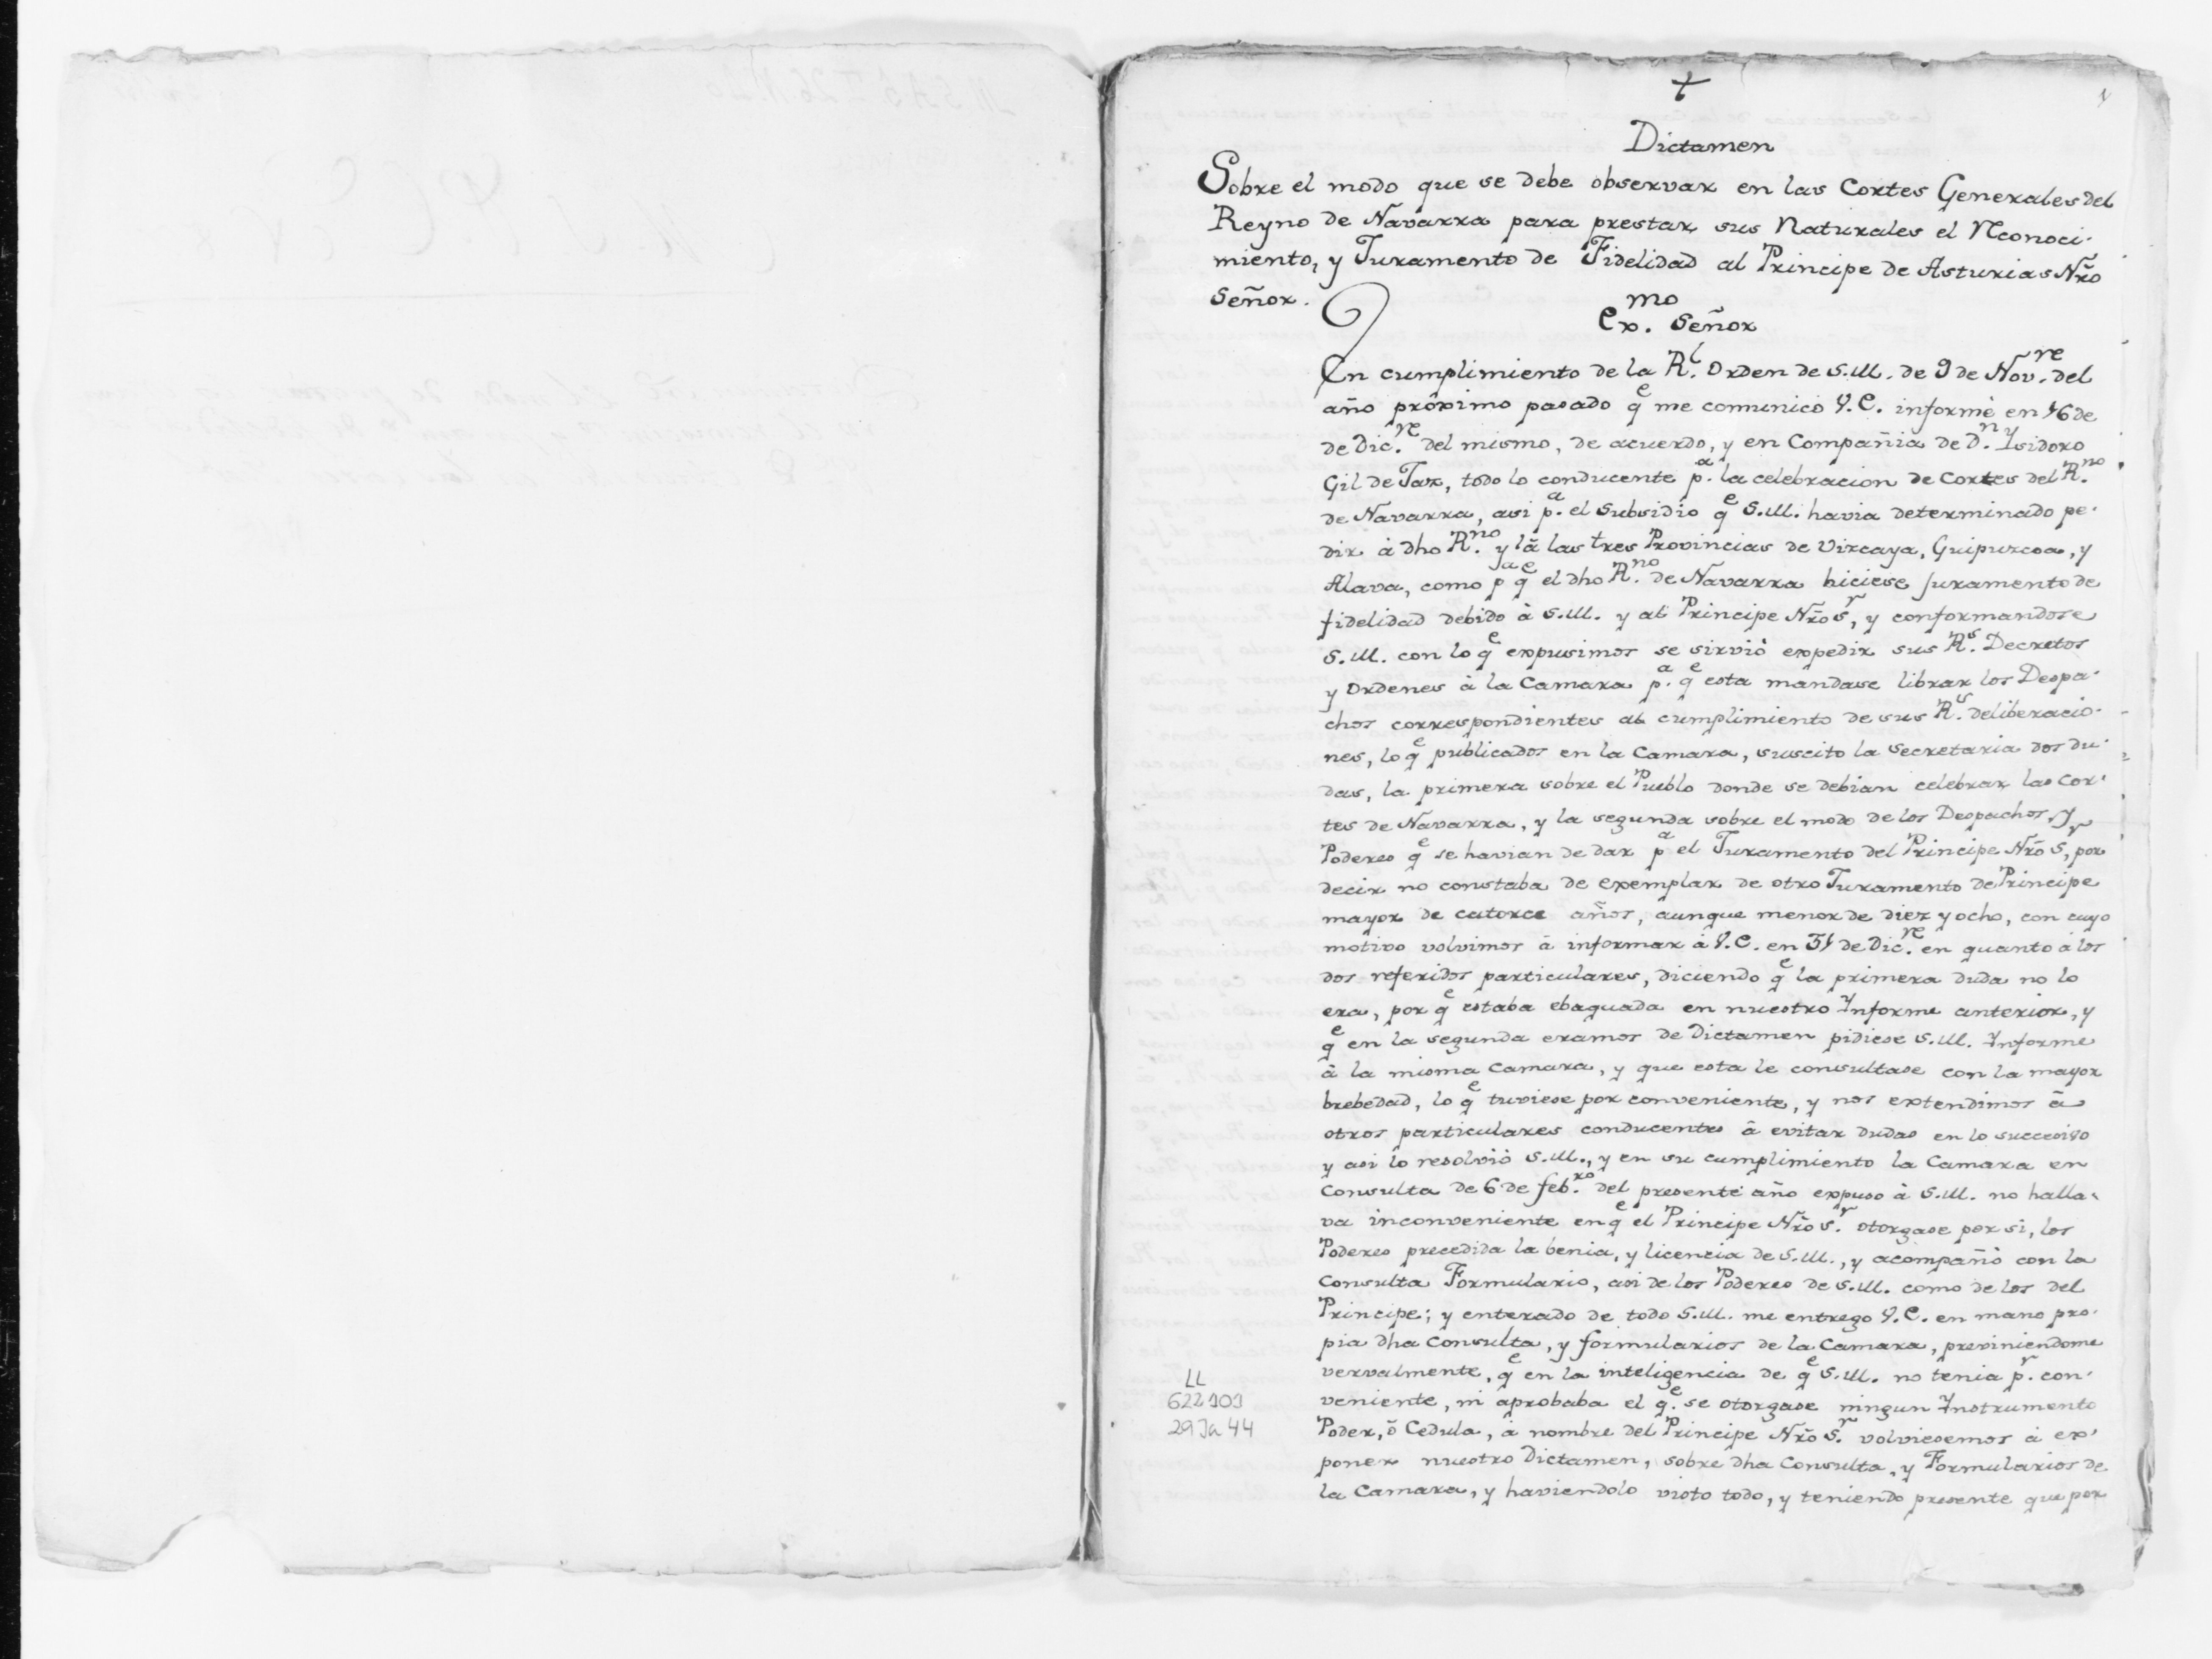 1
+
Dictamen
Sobre el modo que se debe observar en las Cortes Generales del
Reyno de Navarra para prestar sus Naturales el Reconoci-
miento, y Juramento de Fidelidad al Principe de Asturias Nrõ
Señor.
Exmo. Señor
En cumplimiento de la Rl. Orden de S.M. de 9 de Novre. del
año próximo pasado qe me comunicò V.E. informè en 16 de
de Dicre. del mismo, de acuerdo, y en Compañia de Dn. Ysidoro
Gil de Jaz, todo lo conducente pa. la celebracion de Cortes del Rno.
de Navarra, asi pa. el Subsidio qe S.M. havia determinado pe-
dir à dho Rno. y à las tres Provincias de Vizcaya, Guipuzcoa, y
Alava, como pa qe el dho Rno. de Navarra hiciese juramento de
fidelidad debido à S.M. y al Principe Nrõ Sr, y conformandose
S.M. con lo qe expusimos se sirviò expedir sus Rs. Decretos
y Ordenes à la Camara pa. qe esta mandase librar los Despa-
chos correspondientes al cumplimiento de sus Rs. deliberacio-
nes, lo qe publicados en la Camara, suscito la Secretaria dos du-
das, la primera sobre el Pueblo donde se debian celebrar las Cor-
tes de Navarra, y la segunda sobre el modo de los Despachos, y
Poderes qe se havian de dar pa el Juramento del Principe Nrõ Sr, por
decir no constaba de exemplar de otro Juramento de Principe
mayor de catorce años, aunque menor de diez y ocho, con cuyo
motivo volvimos à informar à V.E. en 31 de Dicre. en quanto à los
dos referidos particulares, diciendo qe la primera duda no lo
era, por qe estaba ebaquada en nuestro Ynforme anterior, y
qe en la segunda eramos de Dictamen pidiese S.M. Ynforme
à la misma Camara, y que esta le consultase con la mayor
brebedad, lo qe tuviese por conveniente, y nos extendimos à
otros particulares conducentes à evitar dudas en lo succesivo
y asi lo resolviò S.M., y en su cumplimiento la Camara en
Consulta de 6 de febro. del presente año expuso à S.M. no halla-
va inconveniente en qe el Principe Nrõ Sr. otorgase por si, los
Poderes precedida la benia, y licencia de S.M., y acompañò con la
Consulta Formulario, asi de los Poderes de S.M. como de los del
Principe; y enterado de todo S.M. me entrego V.E. en mano pro-
pia dha Consulta, y formularios de la Camara, previniendome
vervalmente, qe en la inteligencia de qe S.M. no tenia pr. con-
veniente, ni aprobaba el qe. se otorgase ningun Ynstrumento
Poder, ò Cedula, à nombre del Principe Nrõ Sr. volviesemos à ex-
poner nuestro Dictamen, sobre dha Consulta, y Formularios de
la Camara, y haviendolo visto todo, y teniendo presente que por
LL
622101
29 Ja 44